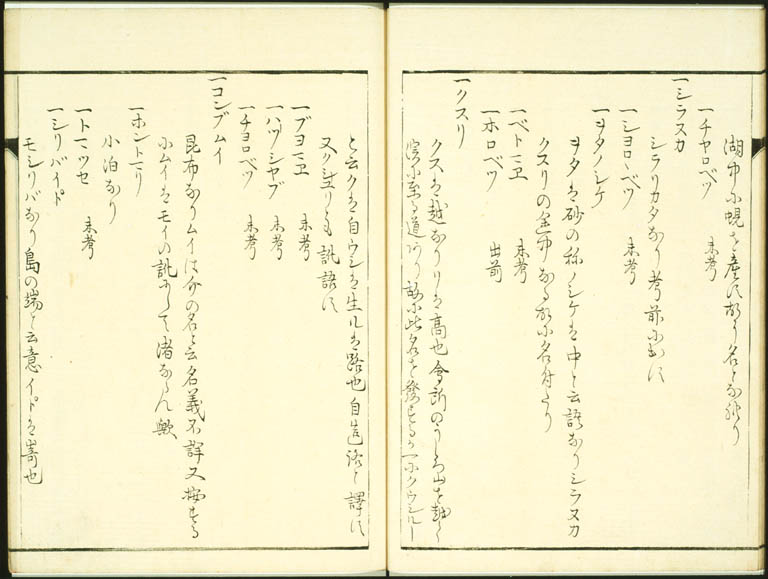 湖中小蜆を産す故に名となれり
一チヤロベツ 未考
一シラヌカ
シラリカタなり考前に出す
一シヨロヽベツ 未考
一ヲタノシケ
ヲタは砂の称ノシケは中と云語なりシラヌカ
クスリの金中なる故に名付たり
一ベトマヱ 未考
一ホロベツ 出前
一クスリ
クスは越なりリは高也會所のうしろ山を越く
に至る道あり故に此名を發するか一にクウシルー
と云クは自ウシは生ルは路也自造路と譯す
又クシリとも訛語す
一ブヨマヱ 未考
一ハツシヤブ 未考
一チヨロベツ 未考
一コンブムイ
昆布なりムイは介の名と云名義不詳又按する
小ムイはモイの訛にして渚ならん歟
一ホントマリ
小泊なり
一トマツセ 未考
一シリバイト゚
モシリバなり島の端と云意イト゚は嵜也